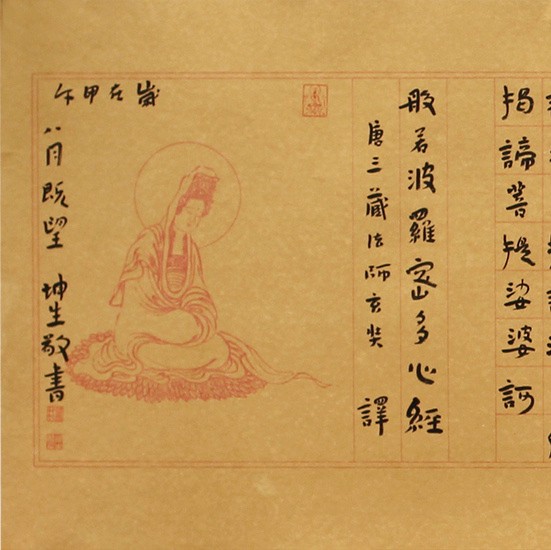 揭諦菩提娑婆訶
般若波羅密多心經
唐三藏法師玄奘 譯
歲在甲午
八月既望 坤生敬書